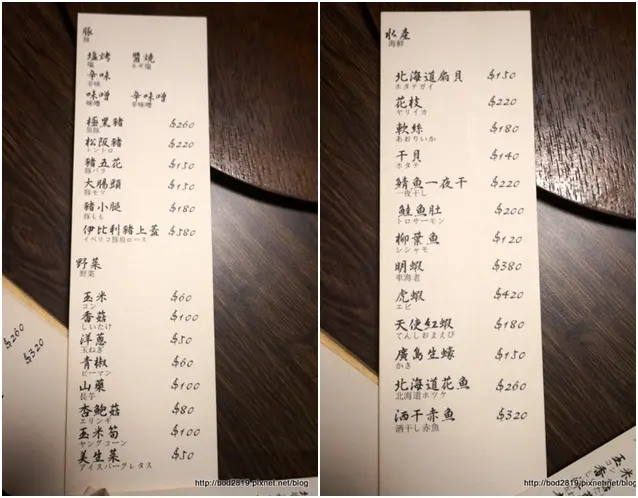 豚
豚
塩烤 醬燒
塩 ネギ塩
辛味
辛味
味噌 辛味噌
味噌 辛味噌
極黑豬 $260
黒豚
松阪豬 $220
トントロ
豬五花 $150
豚バラ
大腸頭 $150
豚モツ
豬小腿 $180
豚もも
伊比利豬上蓋 $580
イベリコ豚肩ロース
野菜
野菜
玉米 $60
コン
香菇 $100
しいたけ
洋蔥 $50
玉ねぎ
青椒 $60
ピーマン
山藥 $100
長芋
杏鮑菇 $80
エリンギ
玉米筍 $100
ヤングコーン
美生菜 $50
アイスバーグレタス
$260
$320
http://bod2819.pixnet.net/blog
水產
海鮮
北海道扇貝 $150
ホタテガイ
花枝 $220
ヤリイカ
軟絲 $180
あおりいか
干貝 $140
ホタテ
鯖魚一夜干 $220
一夜干し
鮭魚肚 $200
トロサーモン
柳葉魚 $120
シシャモ
明蝦 $380
車海老
虎蝦 $420
エビ
天使紅蝦 $180
てんしおまえび
廣島生蠔 $150
かき
北海道花魚 $260
北海道ホッケ
洒干赤魚 $320
洒干し赤魚
玉米
http://bod2819.pixnet.net/blog